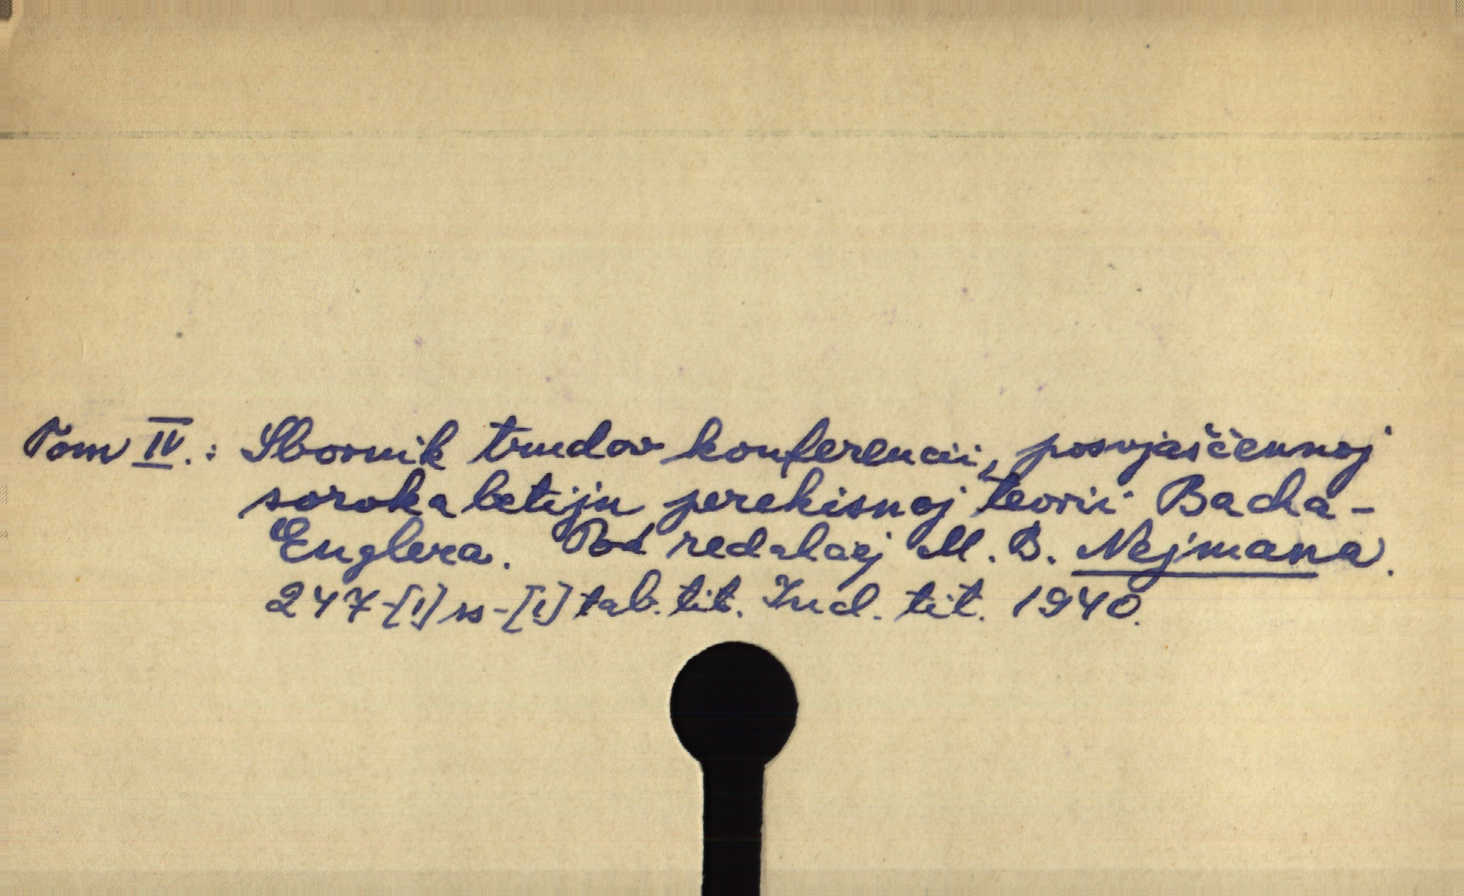 Tom IV.: Sbornik trudov konferencii, posvjaščennoj
soroka letiju perekisnoj teorii Bacha-
Englera. Pod redakcej M. B. Nejmana.
247-[1] ss-[1] tab. tit. Ind. tit. 1940.